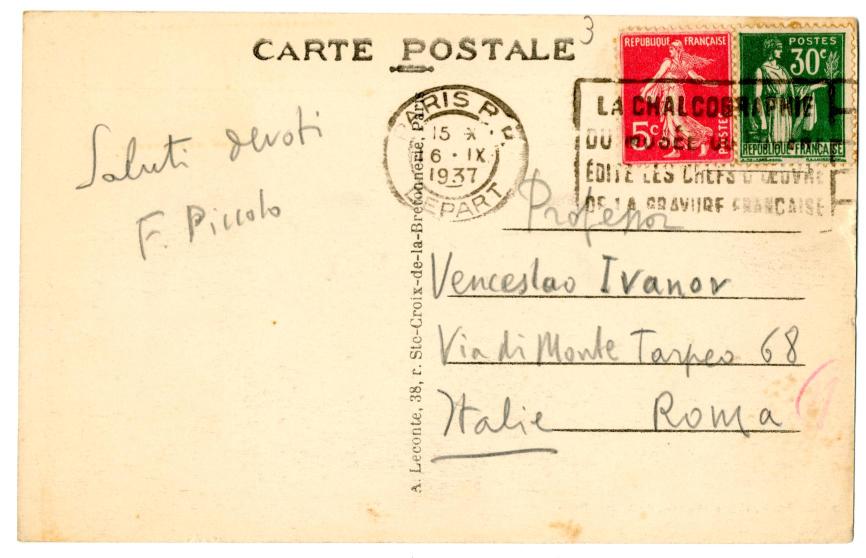 CARTE POSTALE
3
REPUBLIQUE FRANÇAISE
5c
POSTES
POSTES
30c
REPUBLIQUE FRANÇAISE
PARIS R.P.
15 X
6 · IX
1937
DEPART
LA CHALCOGRAPHIE
DU MUSÉE DU
ÉDITE LES CHEFS D'ŒUVRE
DE LA GRAVURE FRANÇAISE
Saluti devoti
F. Piccolo
A. Leconte, 38, r. Ste-Croix-de-la-Bretonnerie, Paris
Professor
Venceslao Ivanov
Via di Monte Tarpeo 68
Italie Roma